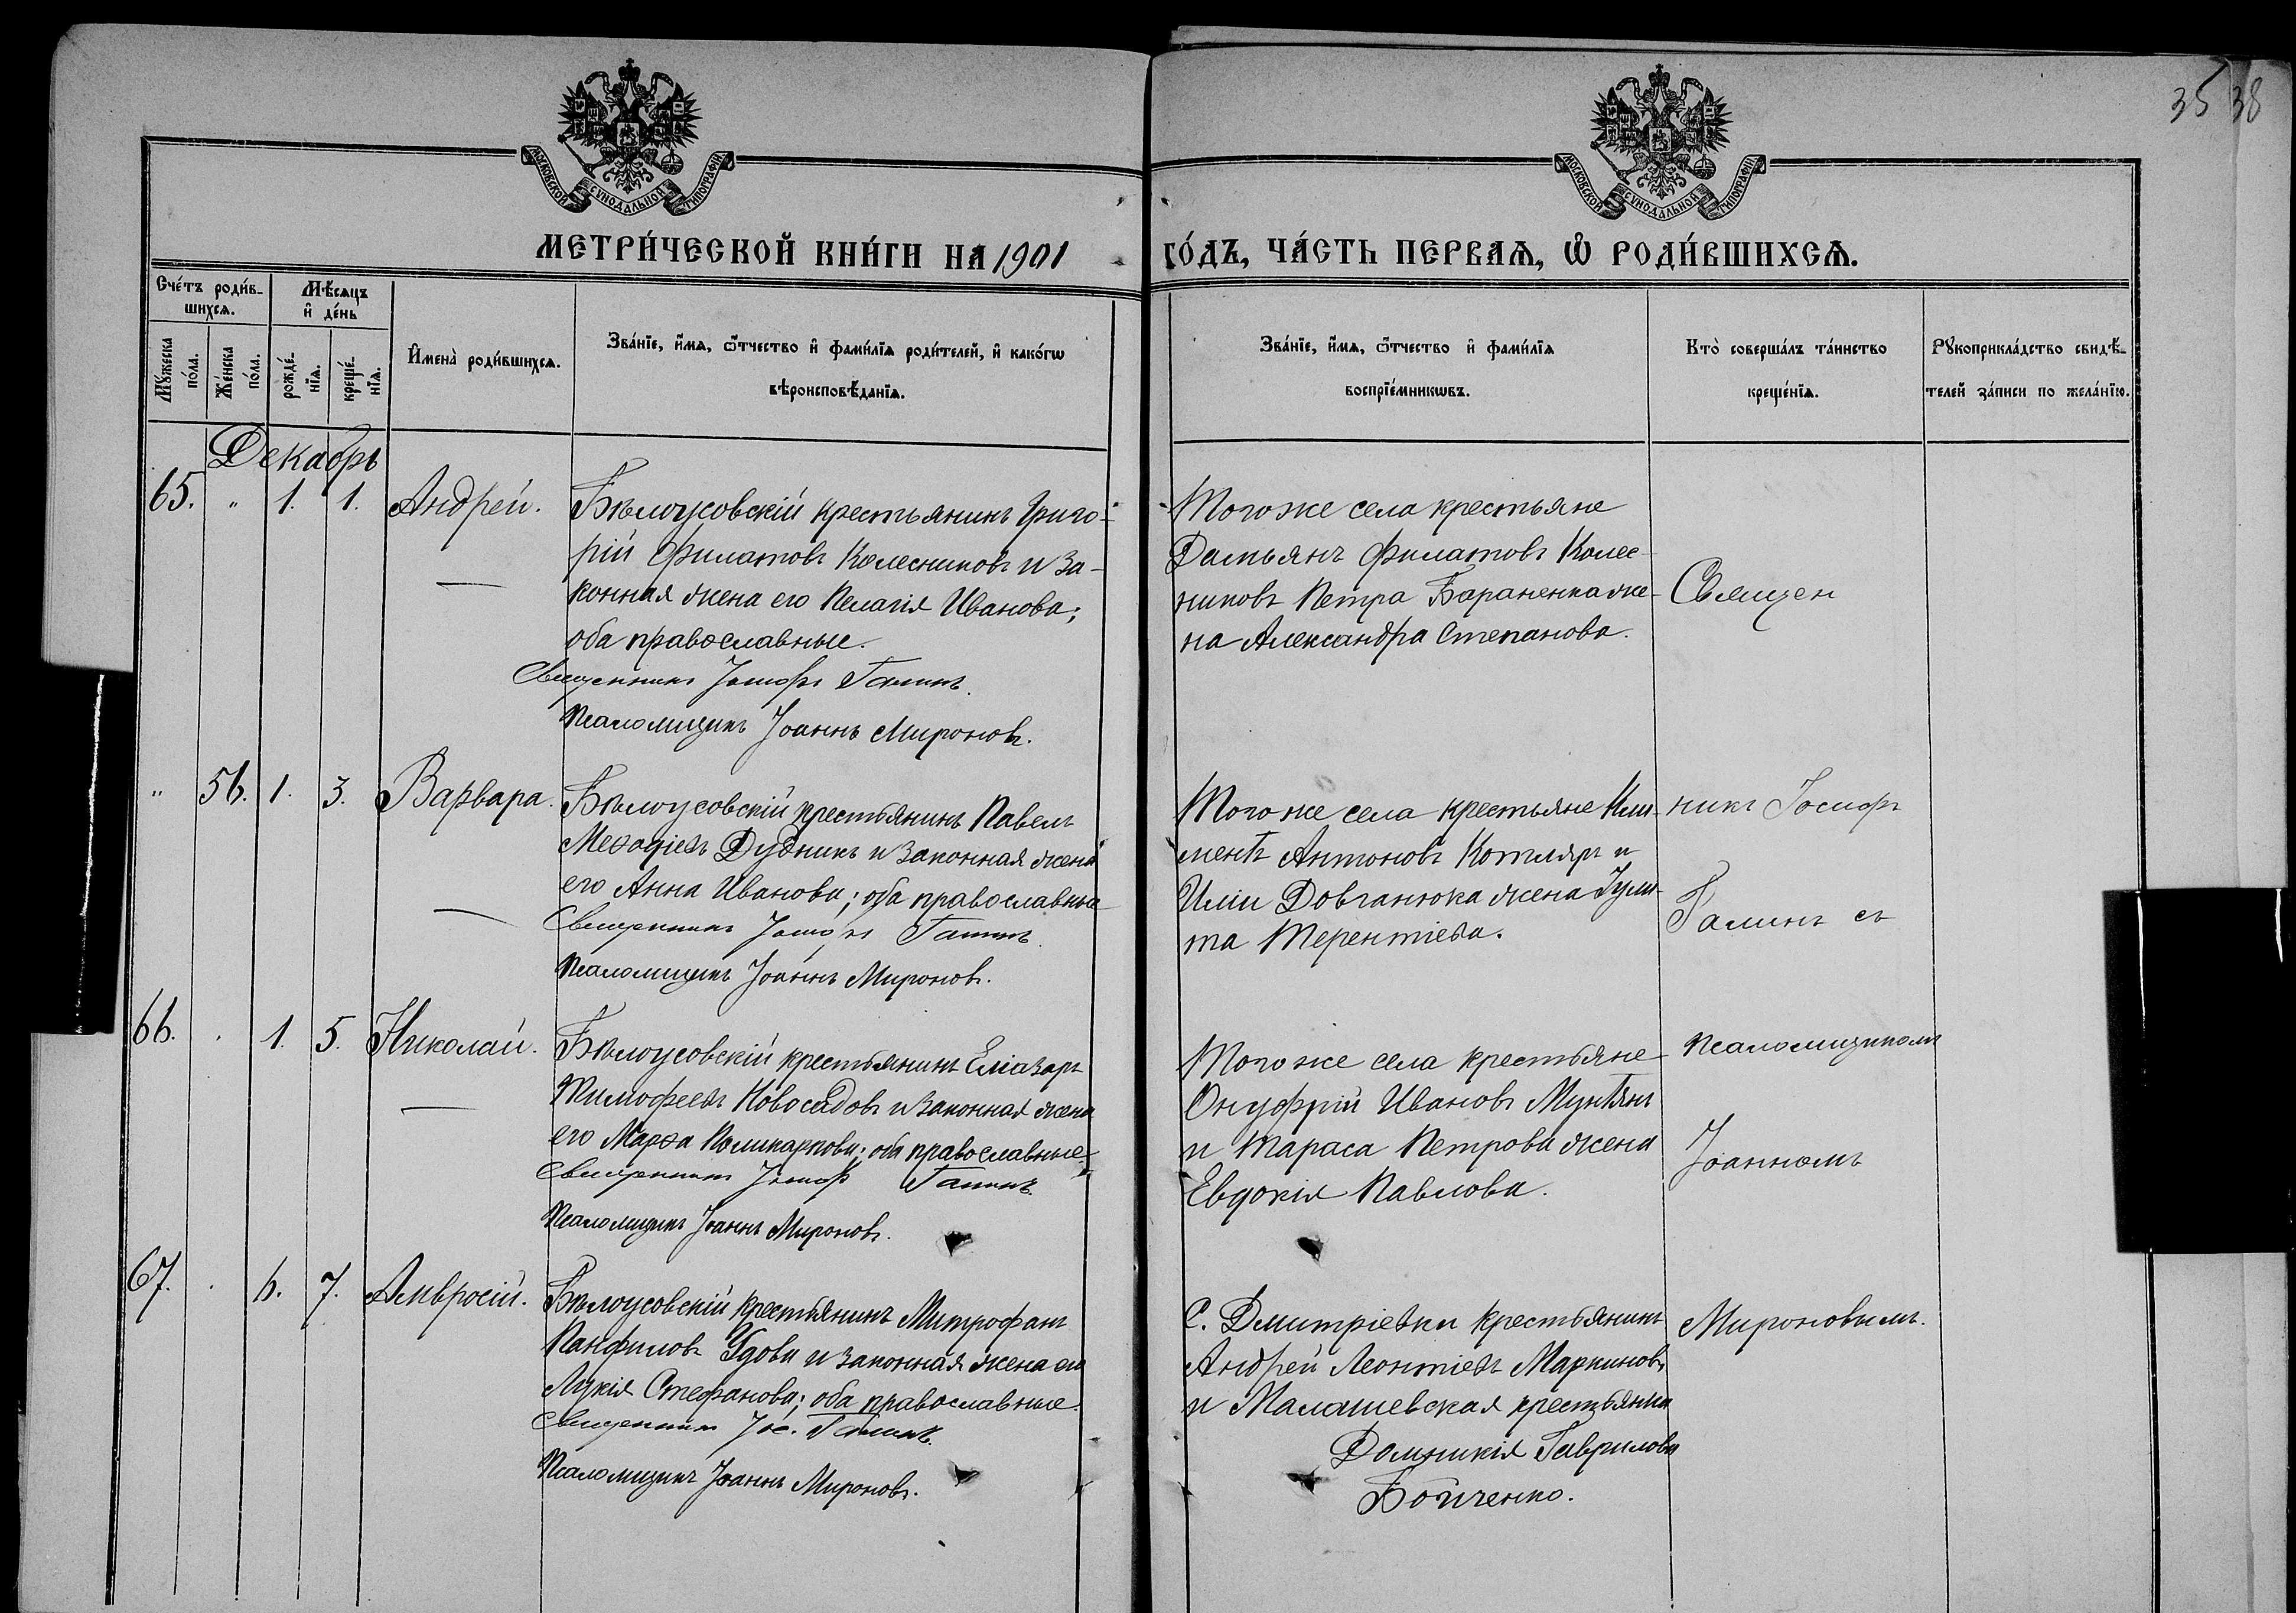 35 38
МОСКОВСКОЙ СѴНОДАЛЬНОЙ ТИПОГРАФІИ
МОСКОВСКОЙ СѴНОДАЛЬНОЙ ТИПОГРАФІИ
МЕТРИ́ЧЕСКОЙ КНИ́ГИ НА 1901 ГО́ДЪ, ЧА́СТЬ ПЕРВАѦ, Ѡ҆ РОДИ́ВШИХСѦ.
Сче́тъ роди́в-
шихсѧ.
Мѣ́сѧцъ
и҆ де́нь
Мꙋ́жеска
по́ла.
Же́нска
по́ла.
рожде́-
нїѧ.
креще́-
нїѧ.
И҆мена̀ роди́вшихсѧ.
Зва́нїе, и҆́мѧ, ѻ҆́тчество и҆ фами́лїѧ роди́телей, и҆ како́гѡ
вѣроисповѣ́данїѧ.
Зва́нїе, и҆́мѧ, ѻ҆́тчество и҆ фами́лїѧ
воспрїе́мникѡвъ.
Кто̀ соверша́лъ та́инство
креще́нїѧ.
Рꙋкоприкла́дство свидѣ́-
телей за́писи по жела́нїю.
Декабрь
65. " 1. 1. Андрей.
Бѣлоусовскій крестьянинъ Григо-
рій Филатовъ Колесниковъ и за-
конная жена его Пелагія Иванова;
оба православные.
Священникъ Іосифъ Галинъ.
Псаломщикъ Іоаннъ Мироновъ.
Того же села крестьяне
Дамьянъ Филатовъ Колес-
никовъ Петра Бараненка же-
на Александра Степанова.
Священ
" 56. 1. 3. Варвара.
Бѣлоусовскій крестьянинъ Павелъ
Меѳодіевъ Дудникъ и законная жена
его Анна Иванова; оба православные
Священникъ Іосифъ Галинъ.
Псаломщикъ Іоаннъ Мироновъ.
Того же села крестьяне Кли-
ментъ Антоновъ Котляръ и
Иліи Довганюка жена Іули-
та Терентіева.
никъ Іосифъ
Галинъ съ
66. . 1. 5. Николай.
Бѣлоусовскій крестьянинъ Еліазаръ
Тимофеевъ Новосадовъ и законная жена
его Марѳа Поликарпова; оба православные
Священникъ Іосифъ Галинъ.
Псаломщикъ Іоаннъ Мироновъ.
Того же села крестьяне
Онуфрій Ивановъ Мунтянъ
и Тараса Петрова жена
Евдокія Павлова.
псаломщикомъ
Іоанномъ
67. . 6. 7. Амвросій.
Бѣлоусовскій крестьянинъ Митрофанъ
Панфиловъ Удова и законная жена его
Лукія Стефанова; оба православные.
Священникъ Іос. Галинъ.
Псаломщикъ Іоаннъ Мироновъ.
С. Дмитріевки крестьянинъ
Андрей Леонтіевъ Маркиновъ
и Малашевская крестьянка
Домникія Гаврилова
Бойченко.
Мироновымъ.